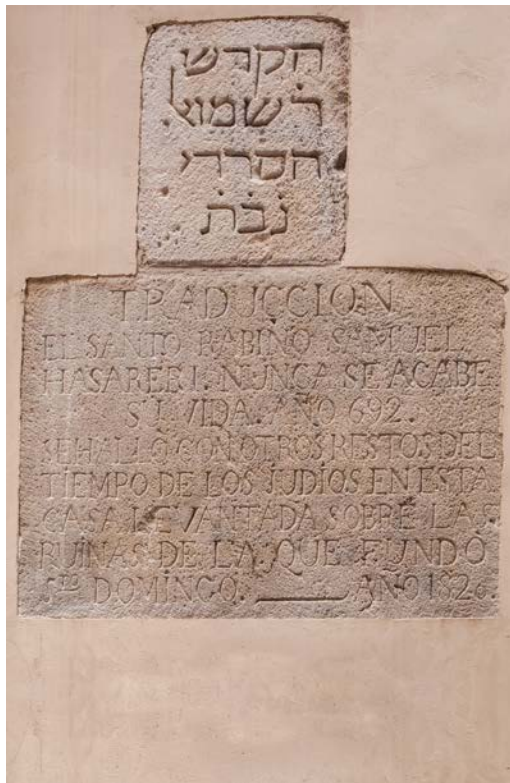 הקדש
ר שמואל
הסרדי
נ ב ת
TRADUCCION.
EL SANTO RABINO SAMUEL
HASARERI. NUNCA SE ACABE
SU VIDA. AÑO 692.
SE HALLO CON OTROS RESTOS DEL
TIEMPO DE LOS JUDIOS EN ESTA
CASA LEVANTADA SOBRE LAS
RUINAS DE LA QUE FUNDÓ
Sto DOMINGO. ——— AÑO 1820